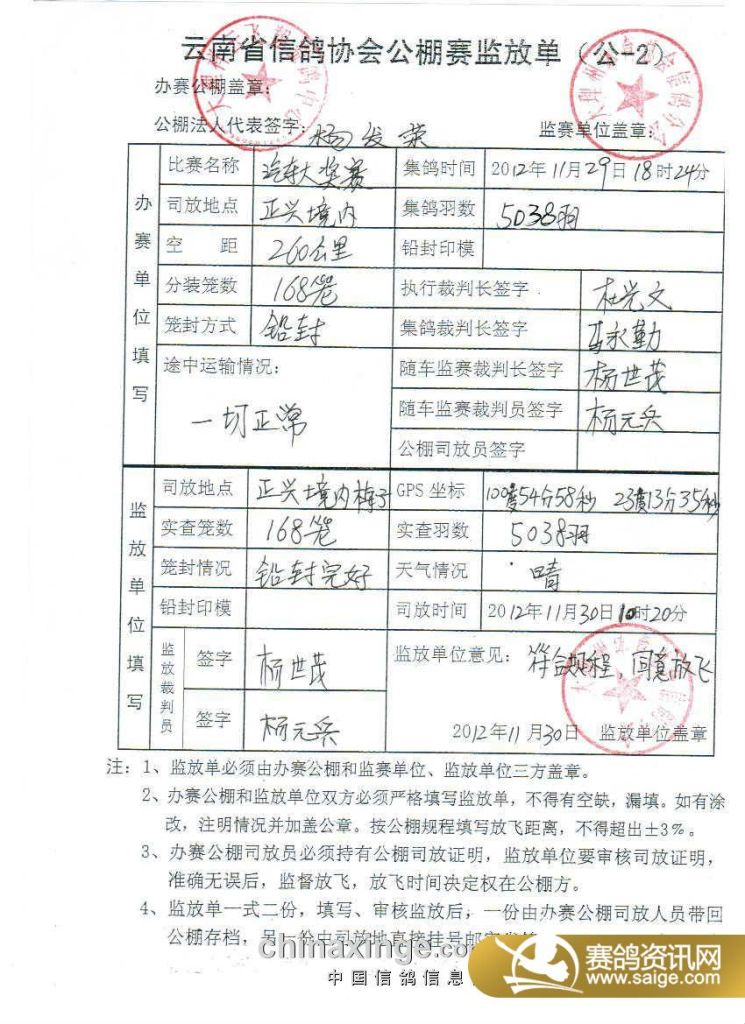 云南省信鸽协会公棚赛监放单（公-2）
办赛公棚盖章：
公棚法人代表签字：杨发荣 监赛单位盖章：
办赛单位填写
比赛名称 汽车大奖赛 集鸽时间 2012年11月29日18时24分
司放地点 正兴境内 集鸽羽数 5038羽
空距 260公里 铅封印模
分装笼数 168笼 执行裁判长签字 杜光文
笼封方式 铅封 集鸽裁判长签字 永勤
途中运输情况： 随车监赛裁判长签字 杨世茂
一切正常 随车监赛裁判员签字 杨元兵
公棚司放员签字
监放单位填写
司放地点 正兴境内 GPS坐标 100度54分58秒 23度13分35秒
实查笼数 168笼 实查羽数 5038羽
笼封情况 铅封完好 天气情况 晴
铅封印模 司放时间 2012年11月30日10时20分
监放裁判员
签字 杨世茂 监放单位意见：符合规程，同意放飞
签字 杨元兵 2012年11月30日 监放单位盖章
注：1、监放单必须由办赛公棚和监赛单位、监放单位三方盖章。
2、办赛公棚和监放单位双方必须严格填写监放单，不得有空缺，漏填。如有涂
改，注明情况并加盖公章。按公棚规程填写放飞距离，不得超出±3%。
3、办赛公棚司放员必须持有公棚司放证明，监放单位要审核司放证明，
准确无误后，监督放飞，放飞时间决定权在公棚方。
4、监放单一式二份，填写、审核监放后，一份由办赛公棚司放人员带回
公棚存档，另一份由司放地直接挂号邮寄
chinaxinge.co
中国信鸽信息
赛鸽资讯网
www.saige.com